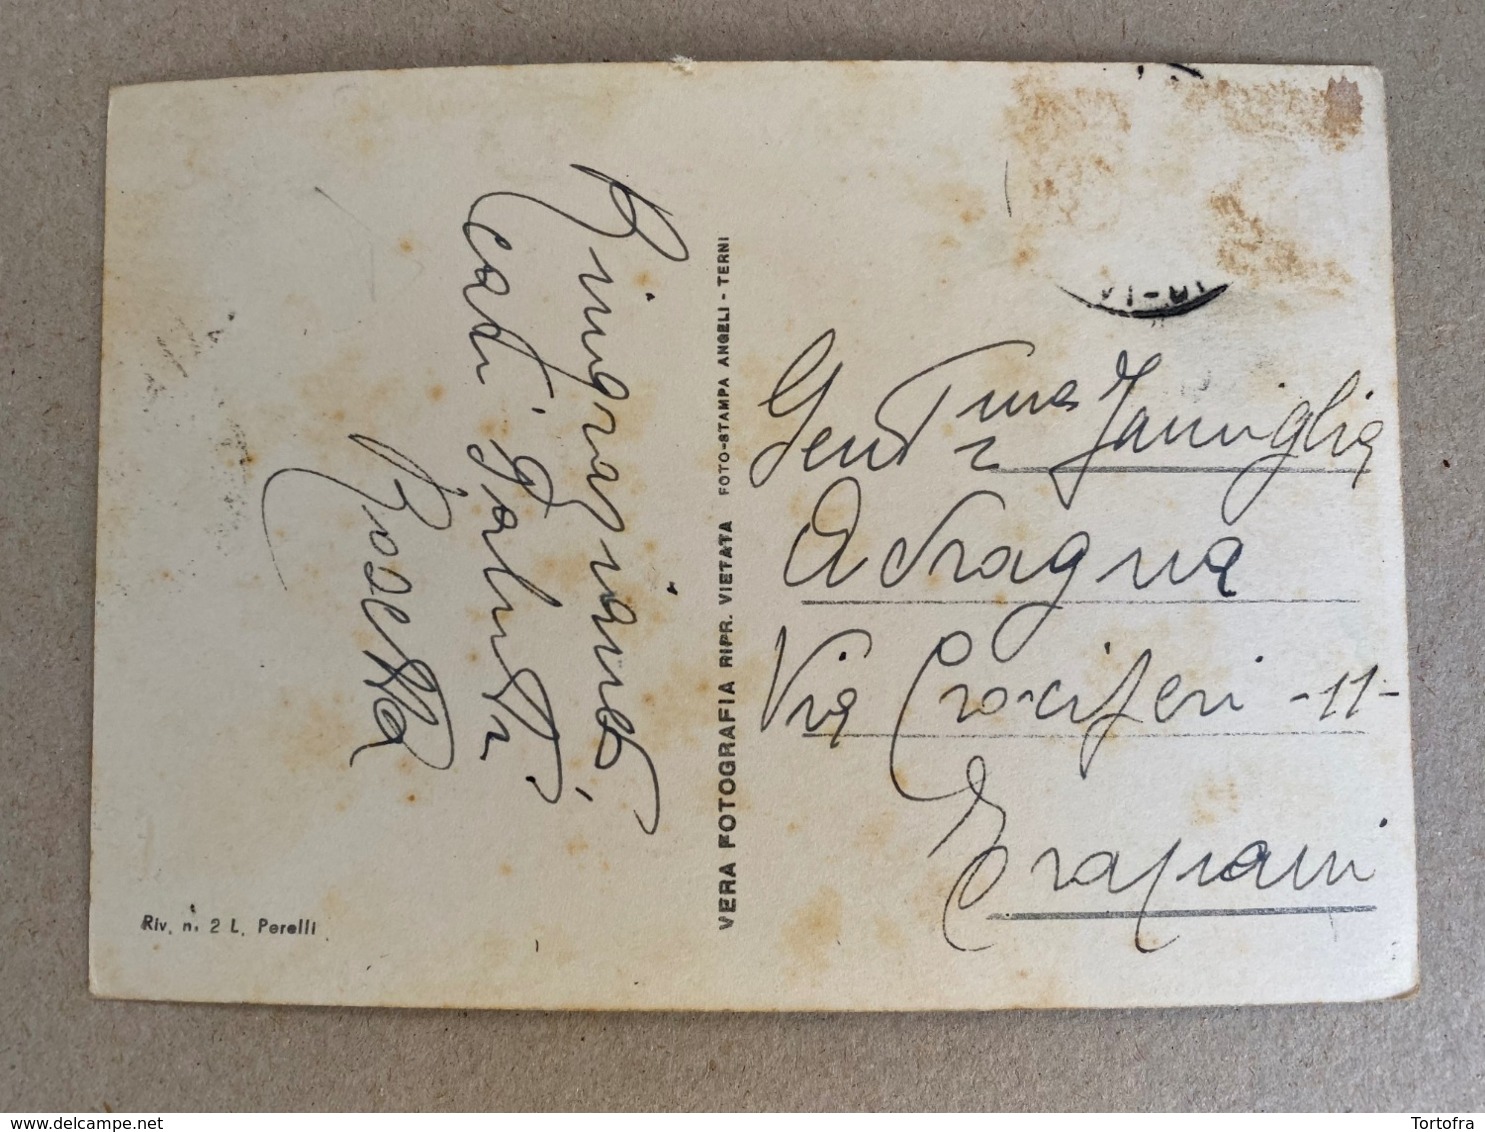 Ringraziamenti,
cari saluti
Rosetta
VERA FOTOGRAFIA RIPR. VIETATA FOTO-STAMPA ANGELI - TERNI
Riv. n. 2 L. Perelli
Gent.me Famiglia
Adragna
Via Crociferi -11-
Trapani
Tortofra